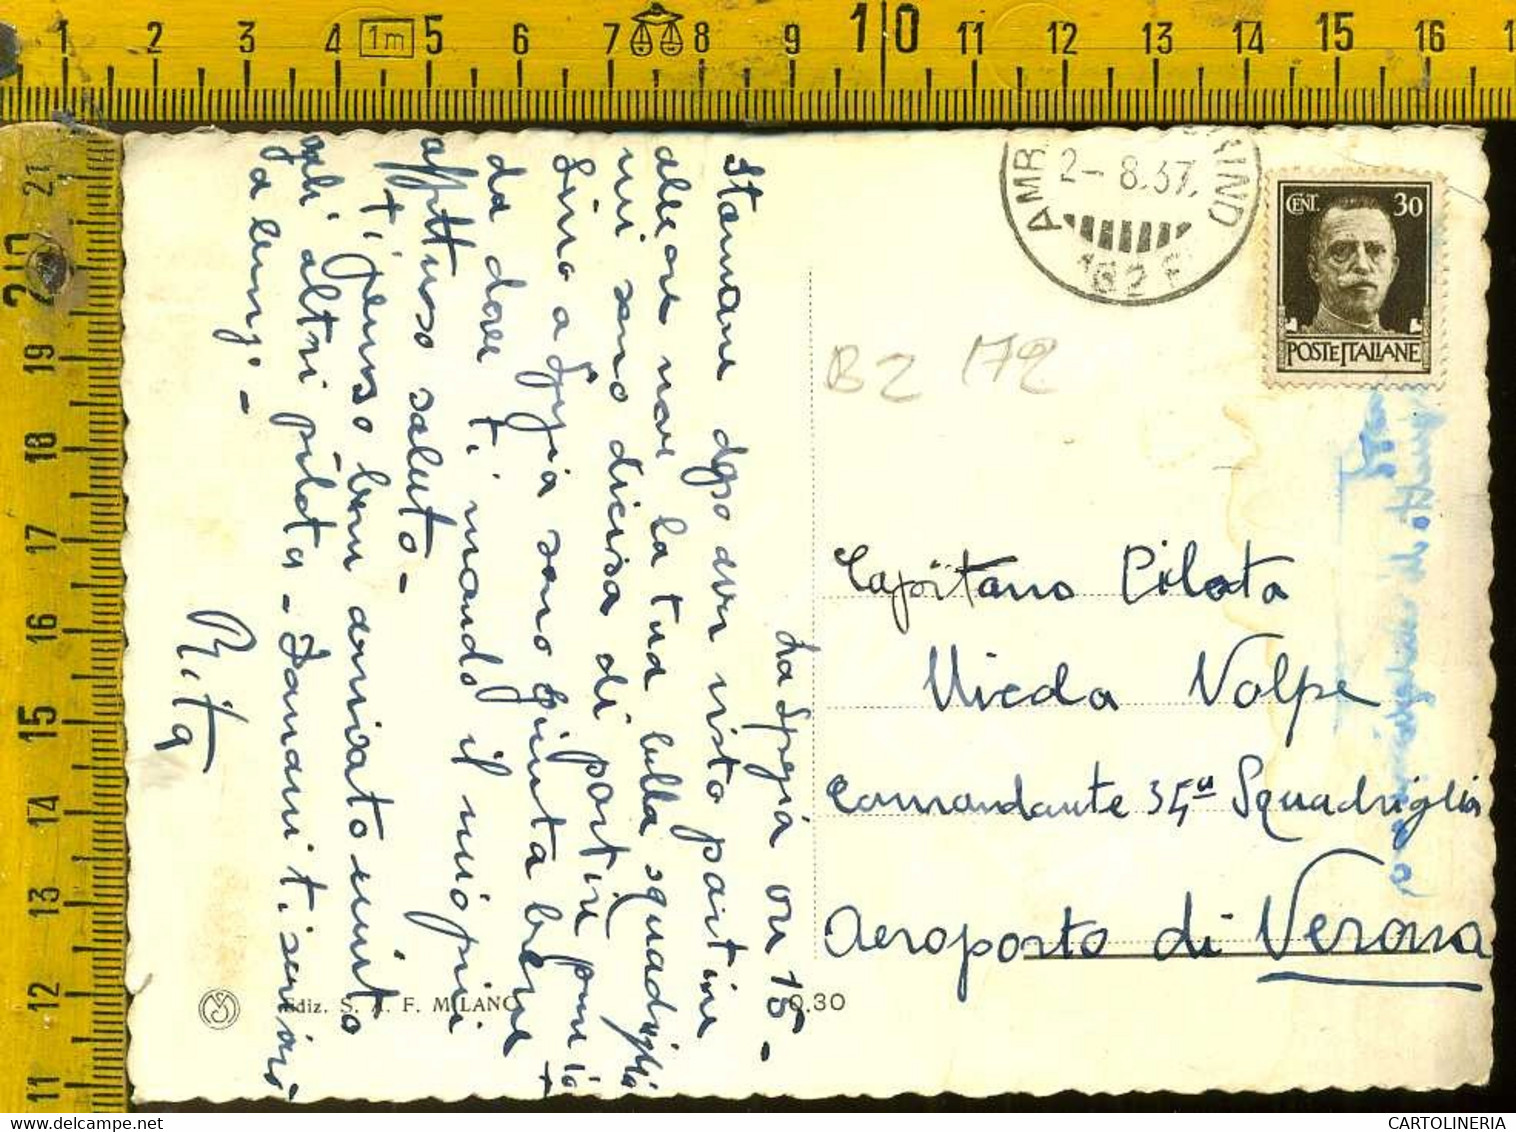 La Spezia ore 15 -
Stamane dopo aver visto partire
alle ore nove la tua bella squadriglia
mi sono decisa di partire pure io
Sino a Spezia sono giunta bene +
da dove ti mando il mio più
affettuoso saluto -
Ti penso ben arrivato unito
agli altri piloti - Domani ti scriverò
a lungo -
Rita
Ediz. S. A. F. MILANO
0.30
AMB
2-8.37.
182
CENT. 30
POSTE ITALIANE
B2 172
Capitano Pilota
Nieda Volpe
Comandante 35a Squadriglia
Aeroporto di Verona
1 2 3 4 1m 5 6 7 8 9 10 11 12 13 14 15 16
21
20
19
18
17
16
15
14
13
12
11
CARTOLINERIA